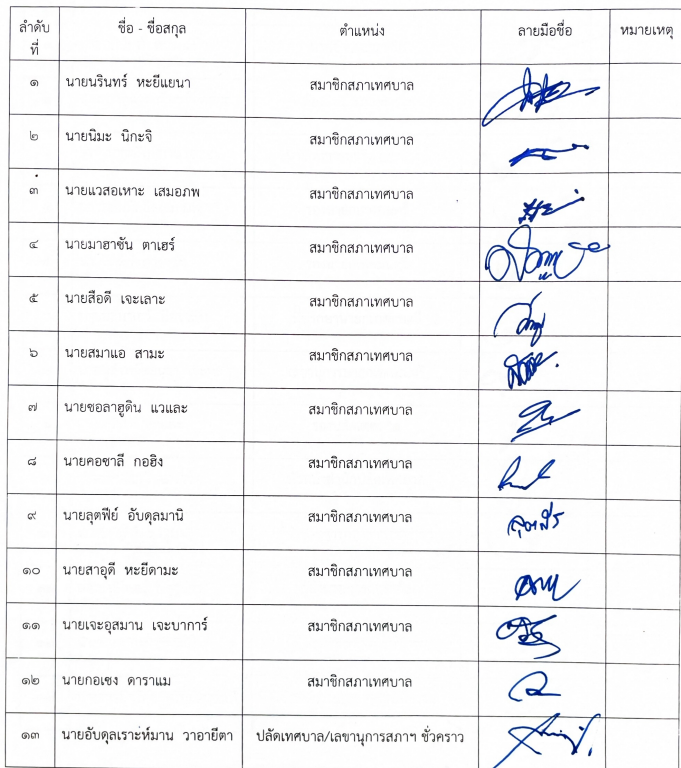 ลำดับ ชื่อ - ชื่อสกุล ตำแหน่ง ลายมือชื่อ หมายเหตุ
ที่
๑ นายนรินทร์ หะยีแยนา สมาชิกสภาเทศบาล
๒ นายนิมะ นิกะจิ สมาชิกสภาเทศบาล
๓ นายแวสอเหาะ เสมอภพ สมาชิกสภาเทศบาล
๔ นายมาฮาซัน ตาเฮร์ สมาชิกสภาเทศบาล
๕ นายสือดี เจะเลาะ สมาชิกสภาเทศบาล
๖ นายสมาแอ สามะ สมาชิกสภาเทศบาล
๗ นายซอลาฮูดิน แวและ สมาชิกสภาเทศบาล
๘ นายคอซาลี กอฮิง สมาชิกสภาเทศบาล
๙ นายลุตฟีย์ อับดุลมานิ สมาชิกสภาเทศบาล
๑๐ นายสาอุดี หะยีดามะ สมาชิกสภาเทศบาล
๑๑ นายเจะอุสมาน เจะบาการ์ สมาชิกสภาเทศบาล
๑๒ นายกอเซง ดาราแม สมาชิกสภาเทศบาล
๑๓ นายอับดุลเราะห์มาน วาอายีตา ปลัดเทศบาล/เลขานุการสภาฯ ชั่วคราว